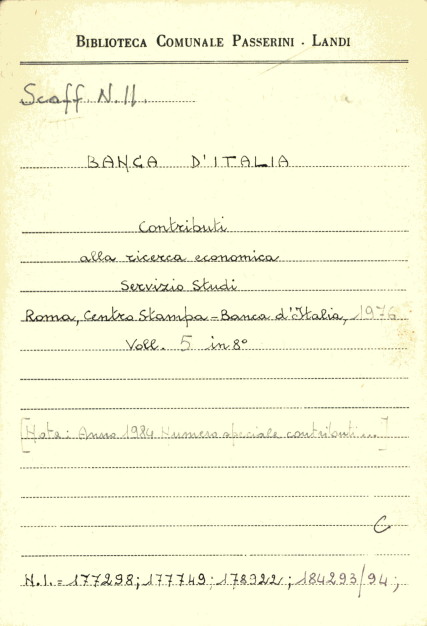 BIBLIOTECA COMUNALE PASSERINI - LANDI
Scaff N.11.
BANCA D'ITALIA
Contributi
alla ricerca economica
Servizio Studi
Roma, Centro Stampa - Banca d'Italia, 1976
Voll. 5 in 8°
[Nota: Anno 1984 Numero speciale contributi...]
C
N.I. = 177298; 177749; 178922; 184293/94;